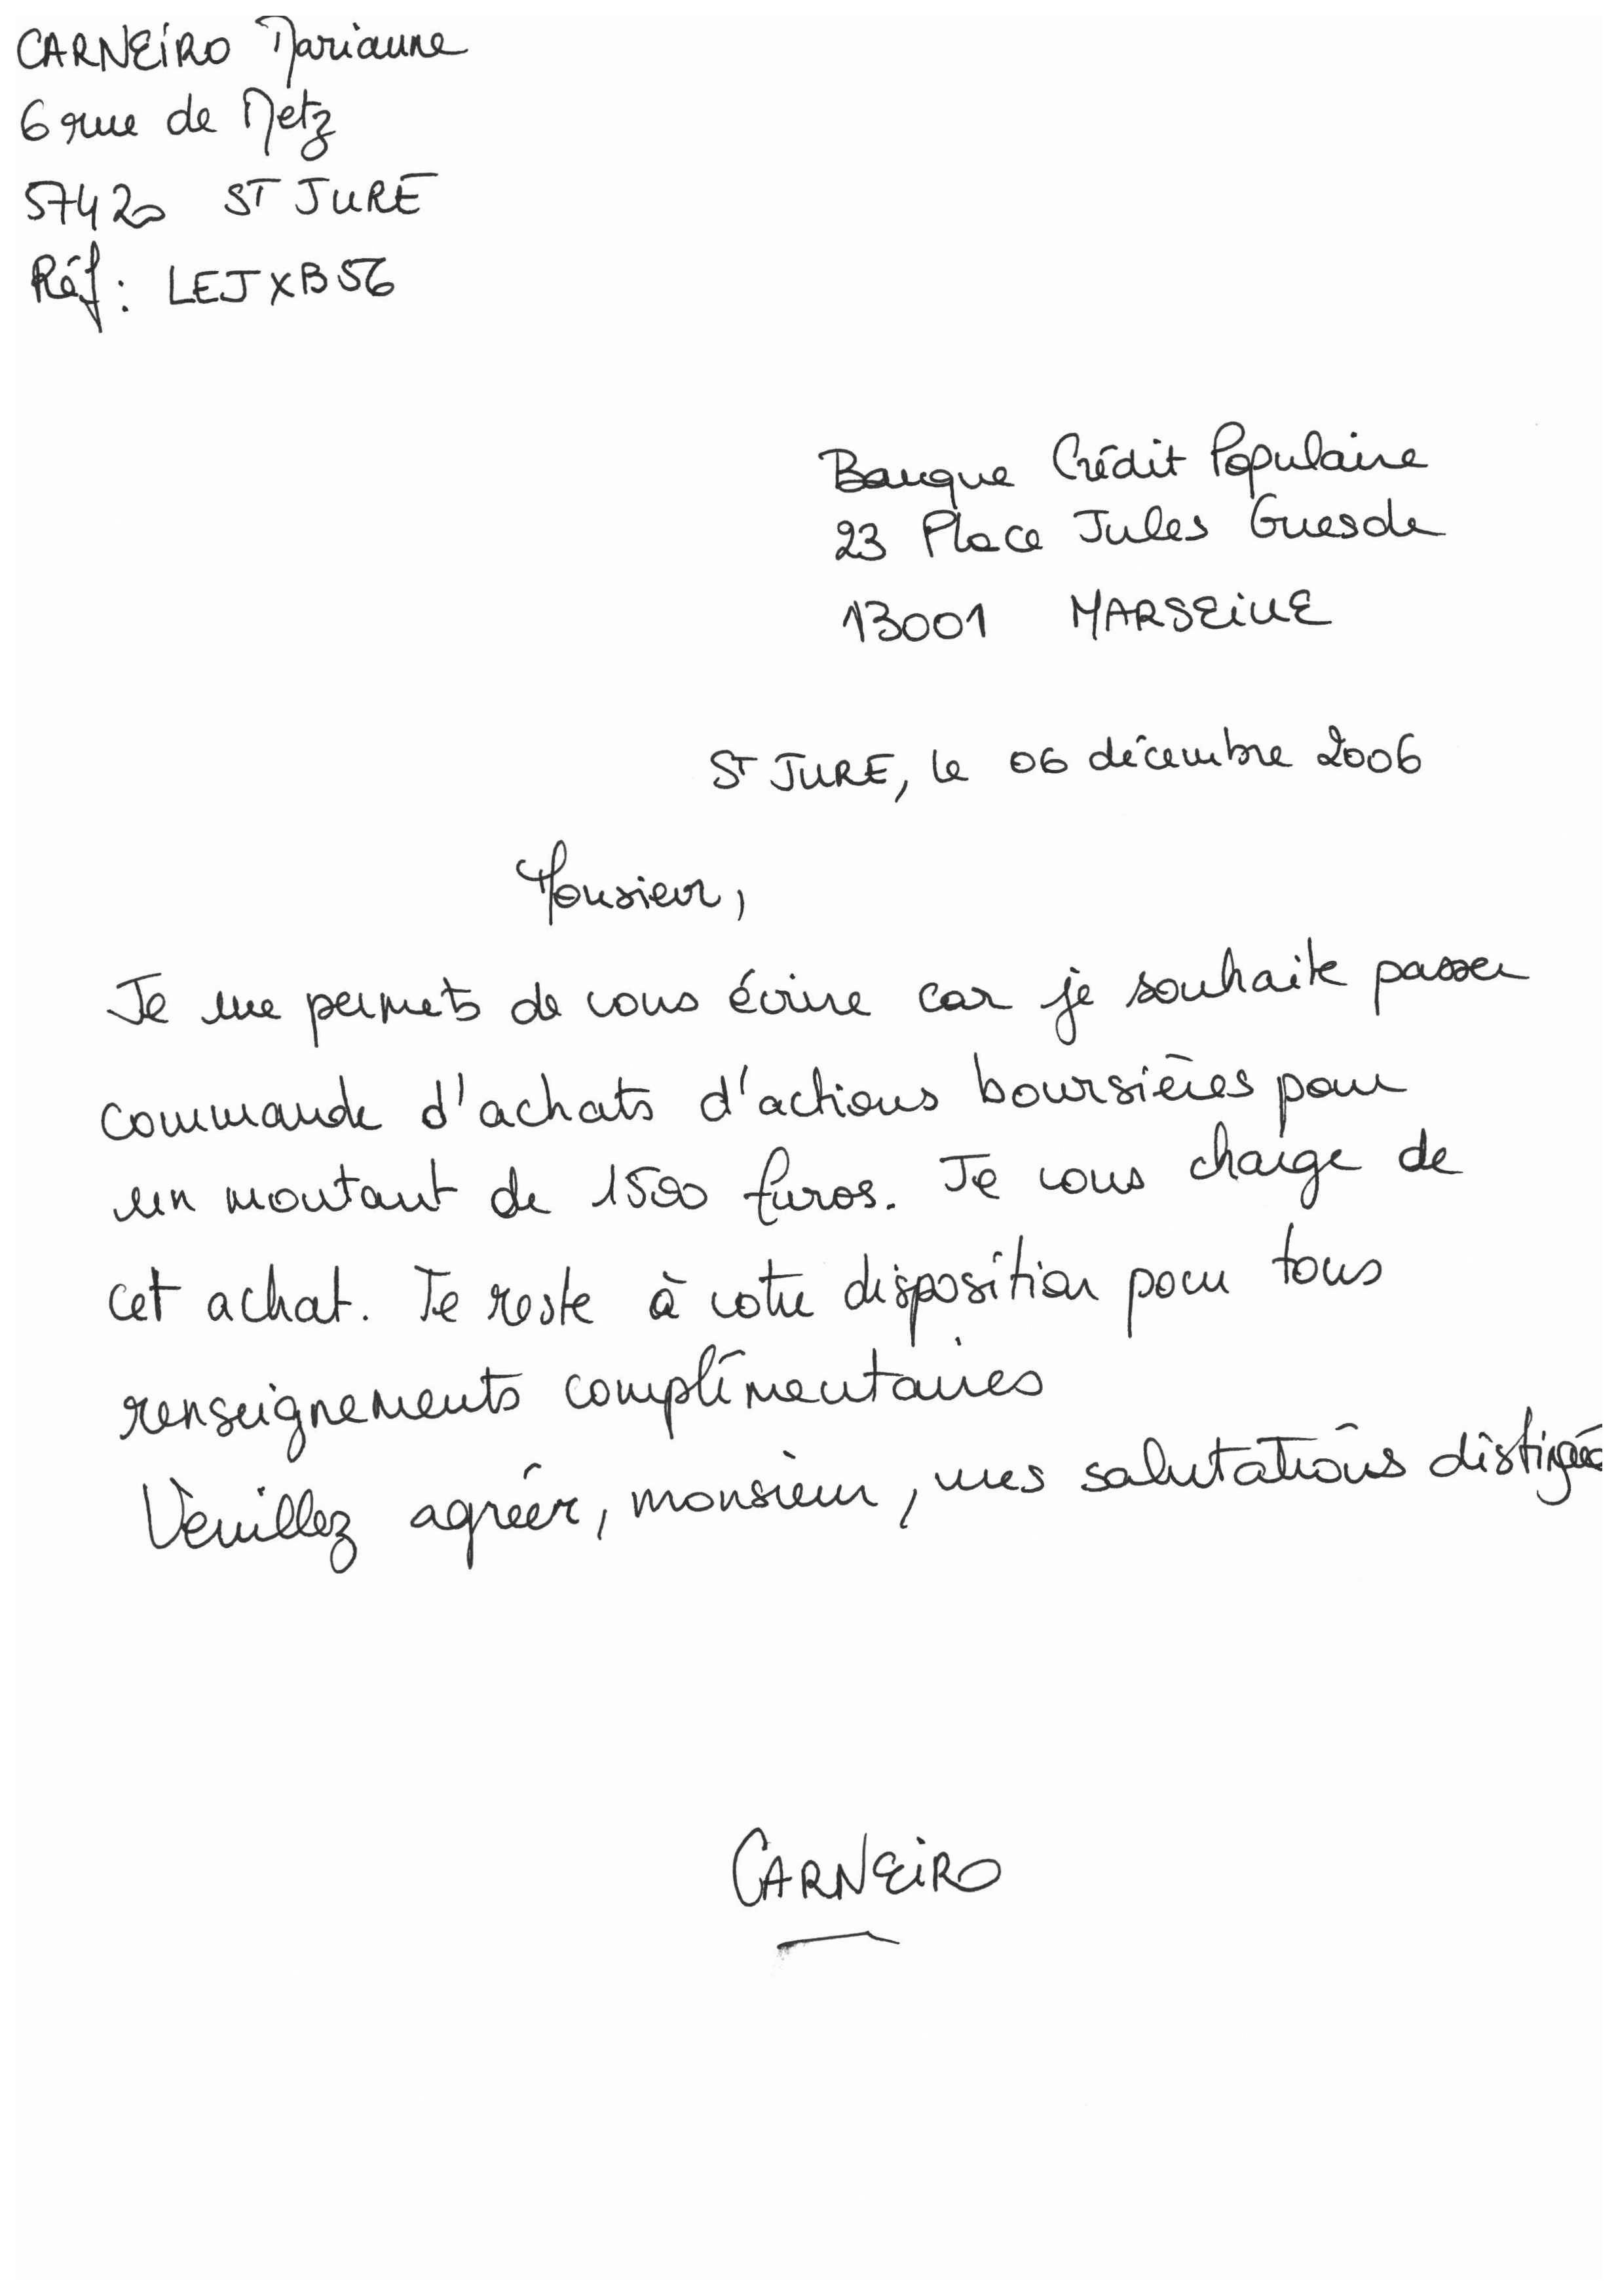 CARNEIRO Marianne
6 rue de Metz
57420 ST JURE
Réf : LEJXB56
Banque Crédit Populaire
23 Place Jules Guesde
13001 MARSEILLE
ST JURE, le 06 décembre 2006
Monsieur,
Je me permets de vous écrire car je souhaite passer
commande d'achats d'actions boursières pour
un montant de 1500 Euros. Je vous charge de
cet achat. Je reste à votre disposition pour tous
renseignements complimentaires
Veuillez agréer, monsieur, mes salutations
CARNEIRO